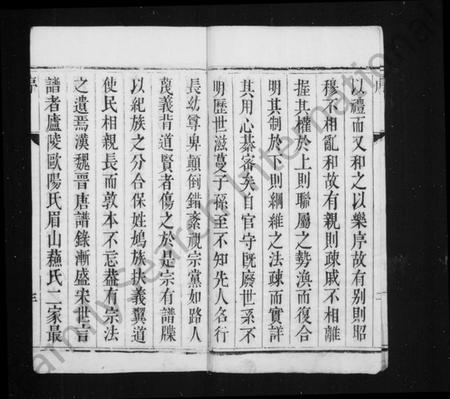 以禮而又和之以樂序故有别則昭
穆不相亂和故有親則疎戚不相離
握其權於上則聯屬之勢渙而復合
明其制於下則綱維之法疎而實詳
其用心綦密矣自官守旣廢世系不
明歷世滋蔓子孫至不知先人名行
長幼尊卑顛倒錯亂視宗黨如路人
蔑義背道賢者傷之於是宗有譜牒
以紀族之分合保姓鳩族扶義翼道
使民相親長而敦本不忘葢有宗法
之遺焉漢魏晉唐譜錄漸盛宋世言
譜者廬陵歐陽氏眉山蘇氏二家最
序
三
FamilySearch International